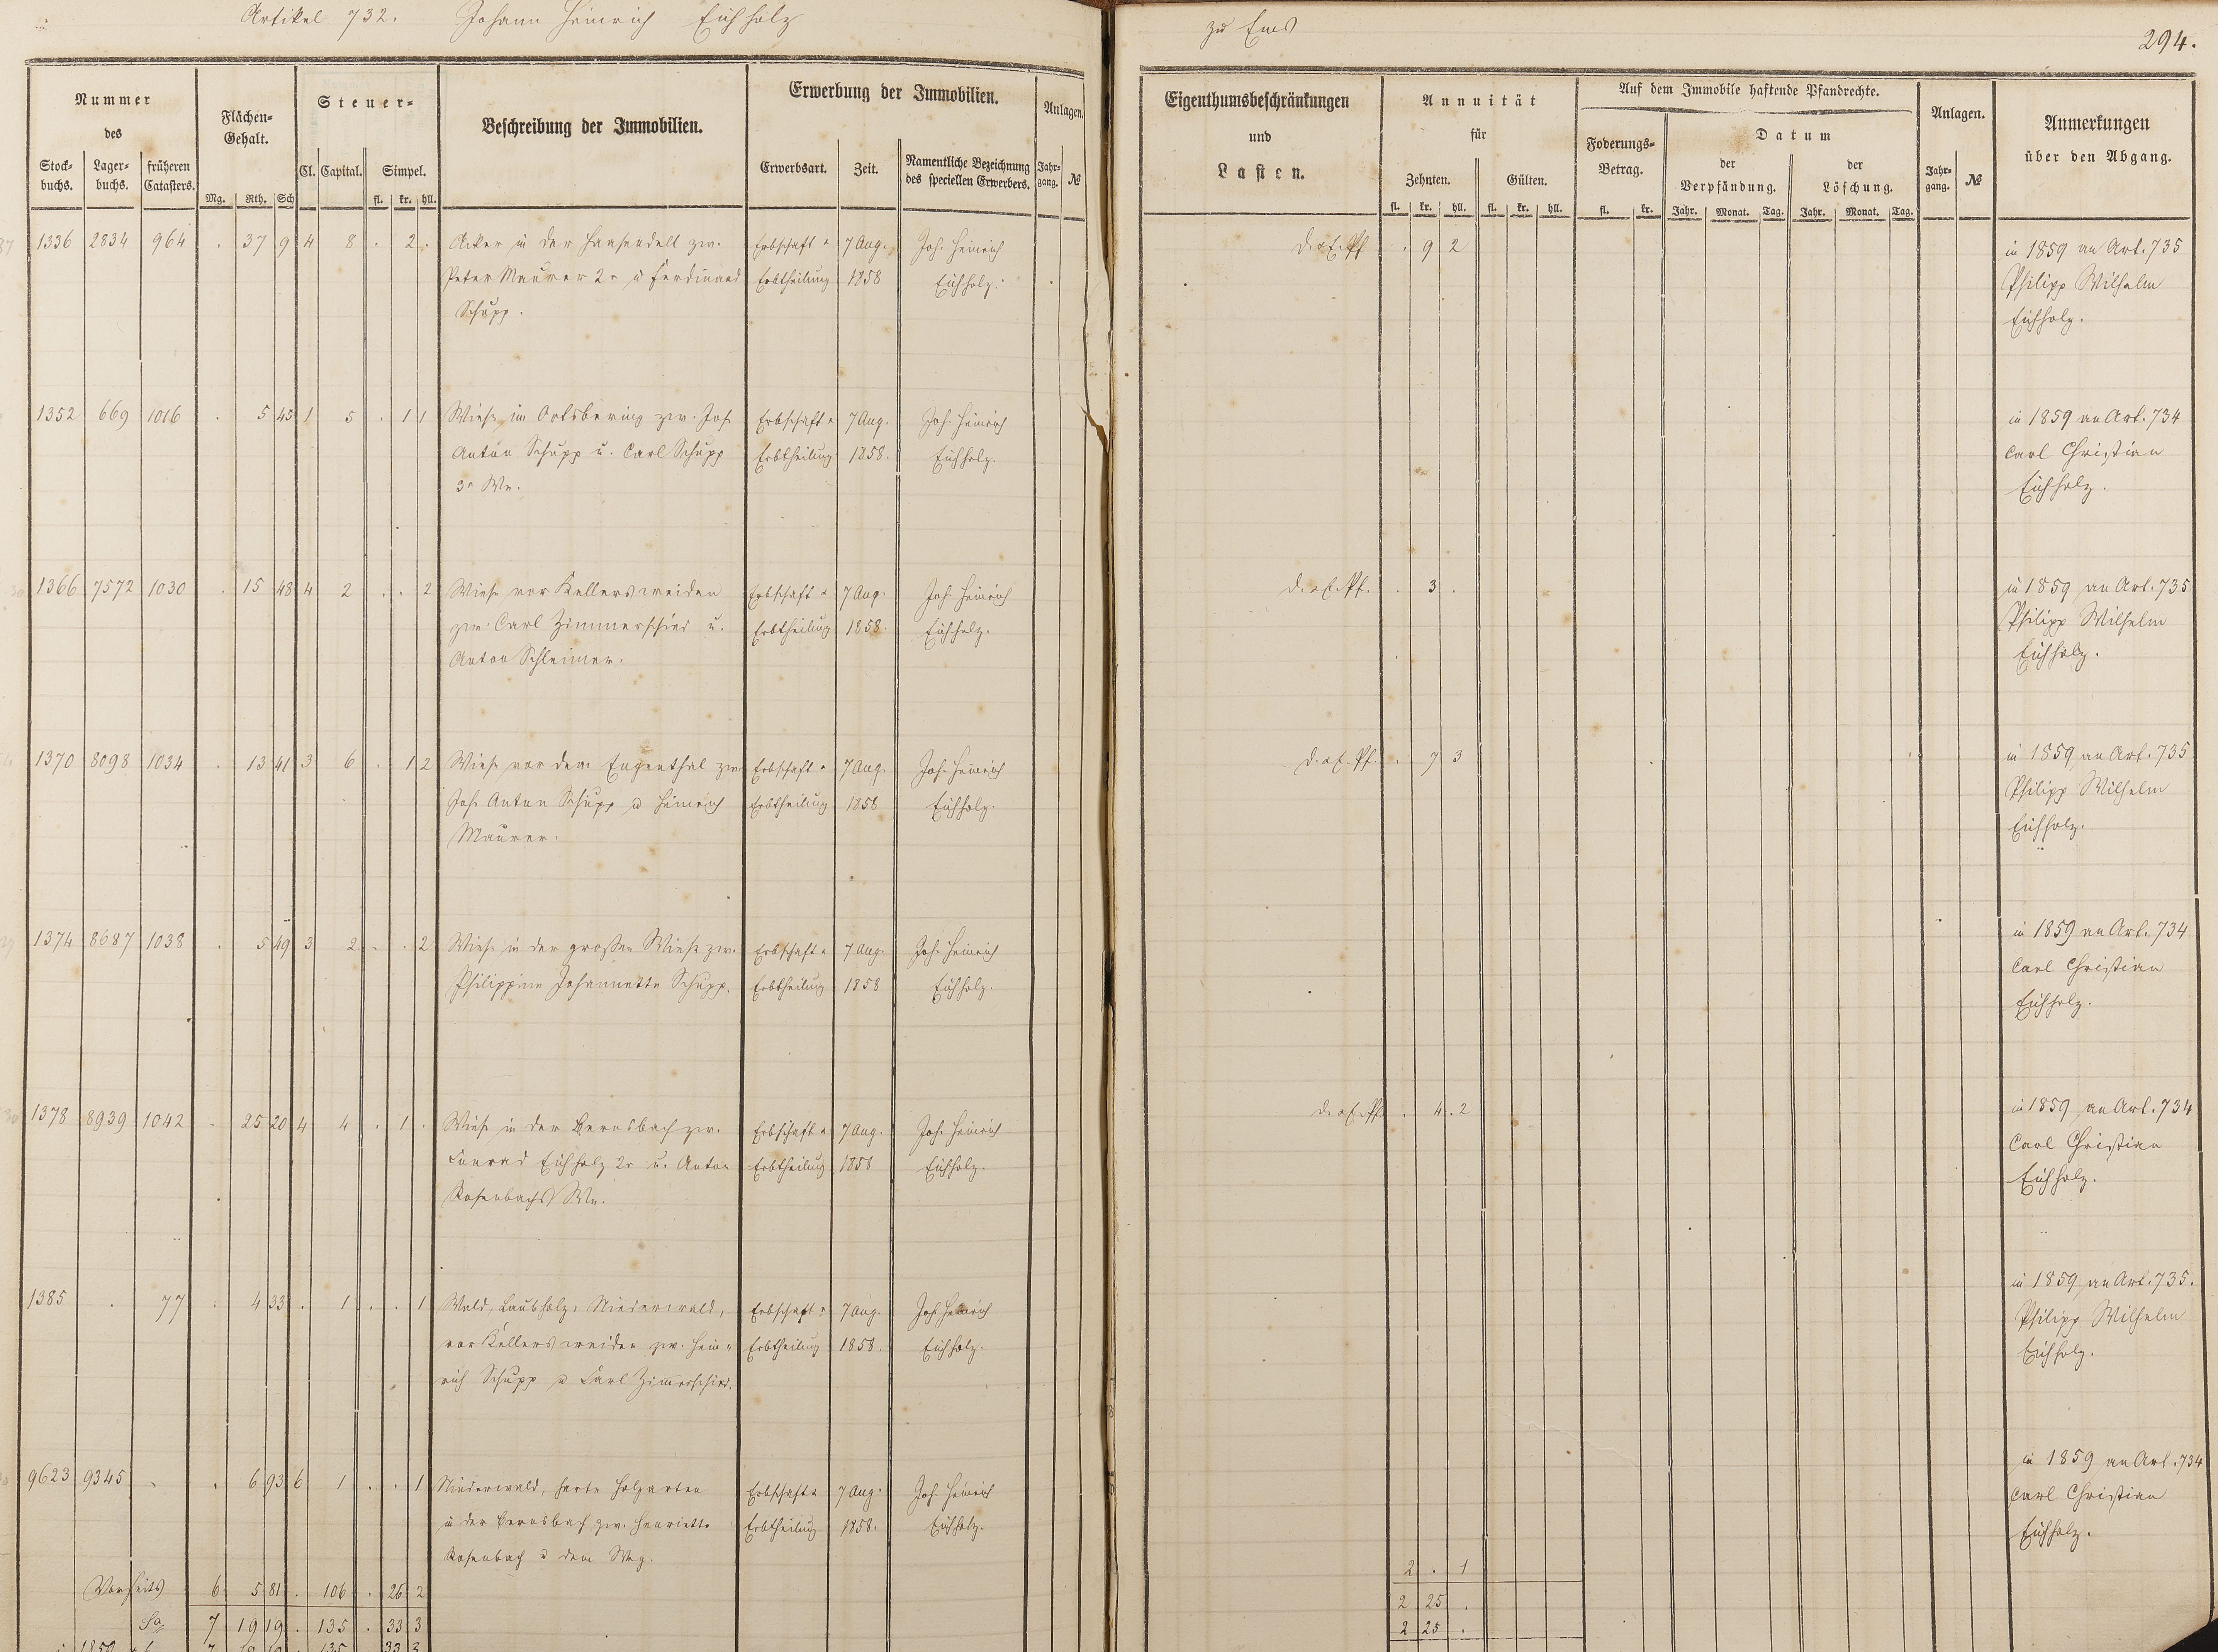 Artikel 732. Johann Heinrich Eichholz
zu Ems
294.
Nummer
des
Stock-
buchs.
Lager-
buchs.
früheren
Catasters.
Flächen-
Gehalt.
Mg. Rth. Sch
Steuer-
Cl. Capital. Simpel.
fl. kr. hll.
Beschreibung der Immobilien.
Erwerbung der Immobilien.
Erwerbsart. Zeit.
Namentliche Bezeichnung
des speciellen Erwerbers.
Anlagen.
Jahr-
gang. №
Eigenthumsbeschränkungen
und
Lasten.
Annuität
für
Zehnten. Gülten.
fl. kr. hll. fl. kr. hll.
Auf dem Immobile haftende Pfandrechte.
Foderungs-
Betrag.
fl. kr.
Datum
der
Verpfändung.
der
Löschung.
Jahr. Monat. Tag. Jahr. Monat. Tag.
Anlagen.
Jahr-
gang. №
Anmerkungen
über den Abgang.
1336 2834 964 . 37 9 4 8 . 2 . Acker in der Hansendell zw. Erbschaft u. 7 Aug. Joh. Heinrich . 9 2 in 1859 an Art. 735
Peter Maurer 2r u Ferdinand Erbtheilung 1858 Eichholz. Philipp Wilhelm
Schupp. Eichholz.
1352 669 1016 . 5 45 1 5 . 1 1 Wiese im Ortsbering zw. Joh. Erbschaft u. 7 Aug. Joh. Heinrich in 1859 an Art. 734
Anton Schupp u. Carl Schupp Erbtheilung 1858. Eichholz. Carl Christian
3r We. Eichholz.
1366 7572 1030 . 15 48 4 2 . . 2 Wiese vor Kellersweiden Erbschaft u. 7 Aug. Joh. Heinrich . 3 . in 1859 an Art. 735
zw. Carl Zimmerschied u. Erbtheilung 1858. Eichholz. Philipp Wilhelm
Anton Schleimer. Eichholz.
1370 8098 1034 . 13 41 3 6 . 1 2 Wiese vor dem Engenthal zw. Erbschaft u. 7 Aug. Joh. Heinrich . 7 3 in 1859 an Art. 735
Joh. Anton Schupp u Heinrich Erbtheilung 1858 Eichholz. Philipp Wilhelm
Maurer. Eichholz.
1374 8687 1038 . 5 49 3 2 . . 2 Wiese in der großen Wiese zw. Erbschaft u. 7 Aug. Joh. Heinrich in 1859 an Art. 734
Philippine Johannette Schupp. Erbtheilung 1858 Eichholz. Carl Christian
Eichholz.
1378 8939 1042 . 25 20 4 4 . 1 . Wiese in der Bernsbach zw. Erbschaft u. 7 Aug. Joh. Heinrich . 4 . 2 in 1859 an Art. 734
Conrad Eichholz 2r u. Anton Erbtheilung 1858 Eichholz. Carl Christian
Rosenbachs We. Eichholz.
1385 . 77 . 4 33 . 1 . . 1 Wald, Laubholz, Niederwald, Erbschaft u. 7 Aug. Joh. Heinrich in 1859 an Art. 735.
vor Kellersweiden zw. Hein- Erbtheilung 1858. Eichholz. Philipp Wilhelm
rich Schupp u Carl Zimerschied. Eichholz.
9623 9345 . . 6 93 6 1 . . 1 Niederwald, harte Holzarten Erbschaft u. 7 Aug. Joh. Heinrich in 1859 an Art. 734
in der Bernsbach zw. Henriette Erbtheilung 1858. Eichholz. Carl Christian
Rosenbach u dem Weg. Eichholz.
2 . 1
Vorseits 6 5 81 . 106 . 26 2
2 25 .
Sa 7 19 19 . 135 . 33 3
2 25 .